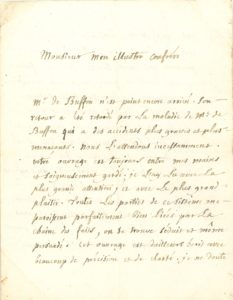 Monsieur mon illustre confrere
Mr. de Buffon n'est point encore arrivé. Son
retour a été retardé par la maladie de Me de
Buffon qui a des accidents plus graves et plus
menaçants. Nous l'attendons incessamment.
votre ouvrage est toujours entre mes mains
et soigneusement gardé. je l'ai lu avec la
plus grande attention, et avec le plus grand
plaisir. Toutes les parties de ce sistème me
paroissent parfaitement bien liées par la
chaine des faits, on se trouve séduit et même
persuadé. cet ouvrage est d'ailleurs écrit avec
beaucoup de précision et de clarté; je ne doute